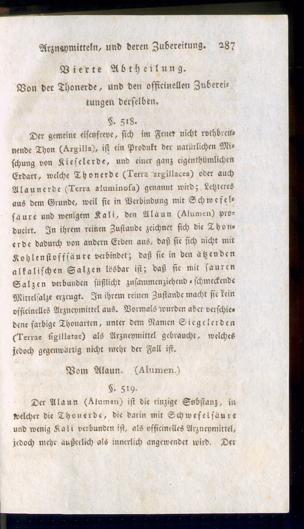 Arzneymitteln, und deren Zubereitung. 287
Vierte Abtheilung.
Von der Thonerde, und den officinellen Zuberei-
tungen derselben.
§. 518.
Der gemeine eisenfreye, sich im Feuer nicht rothbren-
nende Thon (Argilla), ist ein Produkt der natürlichen Mi-
schung von Kieselerde, und einer ganz eigenthümlichen
Erdart, welche Thonerde (Terra argillacea) oder auch
Alaunerde (Terra aluminosa) genannt wird; Letzteres
aus dem Grunde, weil sie in Verbindung mit Schwefel-
säure und wenigem Kali, den Alaun (Alumen) pro-
ducirt. In ihrem reinen Zustande zeichnet sich die Thon-
erde dadurch von andern Erden aus, daß sie sich nicht mit
Kohlenstoffsäure verbindet; daß sie in den ätzenden
alkalischen Salzen lösbar ist; daß sie mit sauren
Salzen verbunden süßlicht zusammenziehend-schmeckende
Mittelsalze erzeugt. In ihrem reinen Zustande macht sie kein
officinelles Arzneymittel aus. Vormals wurden aber verschie-
dene farbige Thonarten, unter dem Namen Siegelerden
(Terrae sigillatae) als Arzneymittel gebraucht, welches
jedoch gegenwärtig nicht mehr der Fall ist.
Vom Alaun. (Alumen.)
§. 519.
Der Alaun (Alumen) ist die einzige Substanz, in
welcher die Thonerde, die darin mit Schwefelsäure
und wenig Kali verbunden ist, als officinelles Arzneymittel,
jedoch mehr äußerlich als innerlich angewendet wird. Der